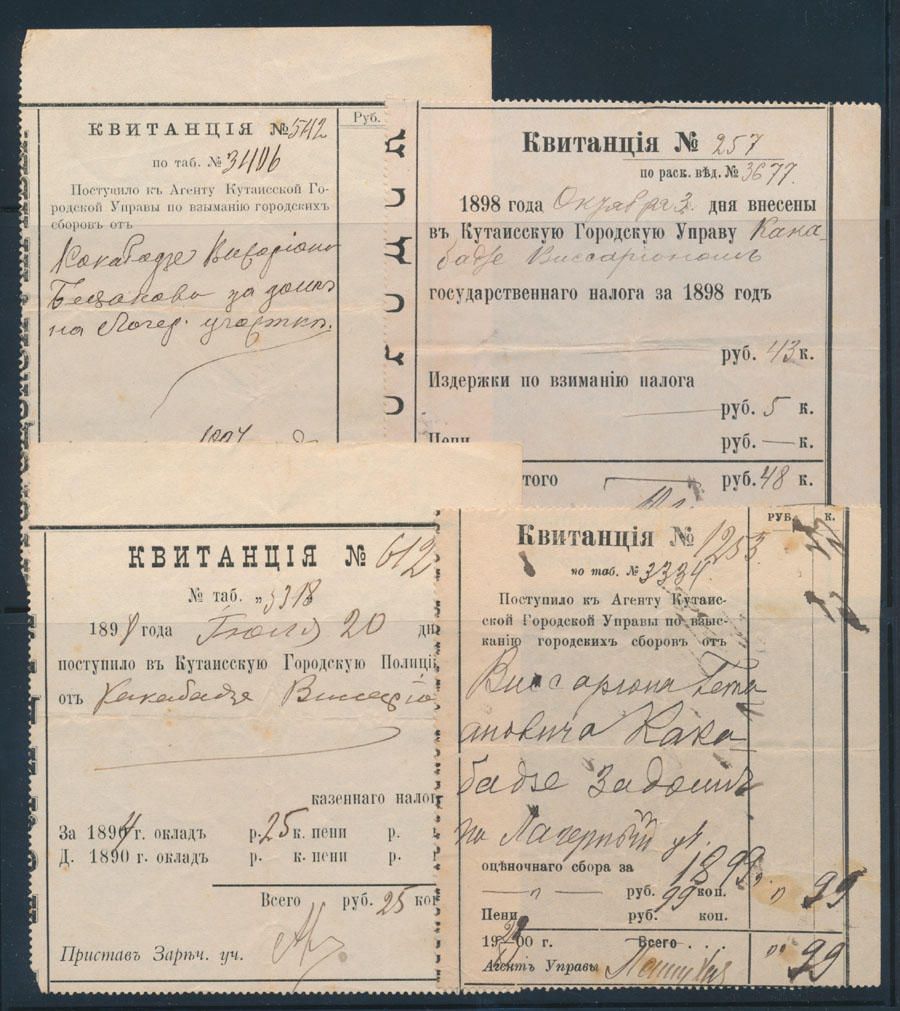 КВИТАНЦІЯ № 542
Руб.
по таб. № 3406
Поступило къ Агенту Кутаисской Го-
родской Управы по взыманію городскихъ
сборовъ отъ
на Лагер. участкѣ.
Квитанція № 257
по раск. вѣд. № 3677.
1898 года Октября 3 дня внесены
въ Кутаисскую Городскую Управу Кака-
бадзе Виссаріономъ
государственнаго налога за 1898 годъ
руб. 43 к.
Издержки по взиманію налога
руб. 5 к.
Пени руб. — к.
того руб. 48 к.
КВИТАНЦІЯ № 612
№ таб. „ 3318
1891 года Іюля 20 дн
поступило въ Кутаисскую Городскую Полиці
отъ Какабадзе Виссаріо
казеннаго налог
За 1890 г. окладъ р. 25 к. пени р.
Д. 1890 г. окладъ р. к. пени р.
Всего руб. 25 коп
Приставъ Зарѣч. уч.
Квитанція № 1253
РУБ. К.
по таб. № 3334.
Поступило къ Агенту Кутаис-
ской Городской Управы по взыс-
канію городскихъ сборовъ отъ
Виссаріона
Кака-
бадзе за домъ
по Лагерный ул.
оцѣночнаго сбора за 1899
— „ — руб. 99 коп. „ 99
Пени руб. коп.
19 00 г. Всего „ 99
Агентъ Управы